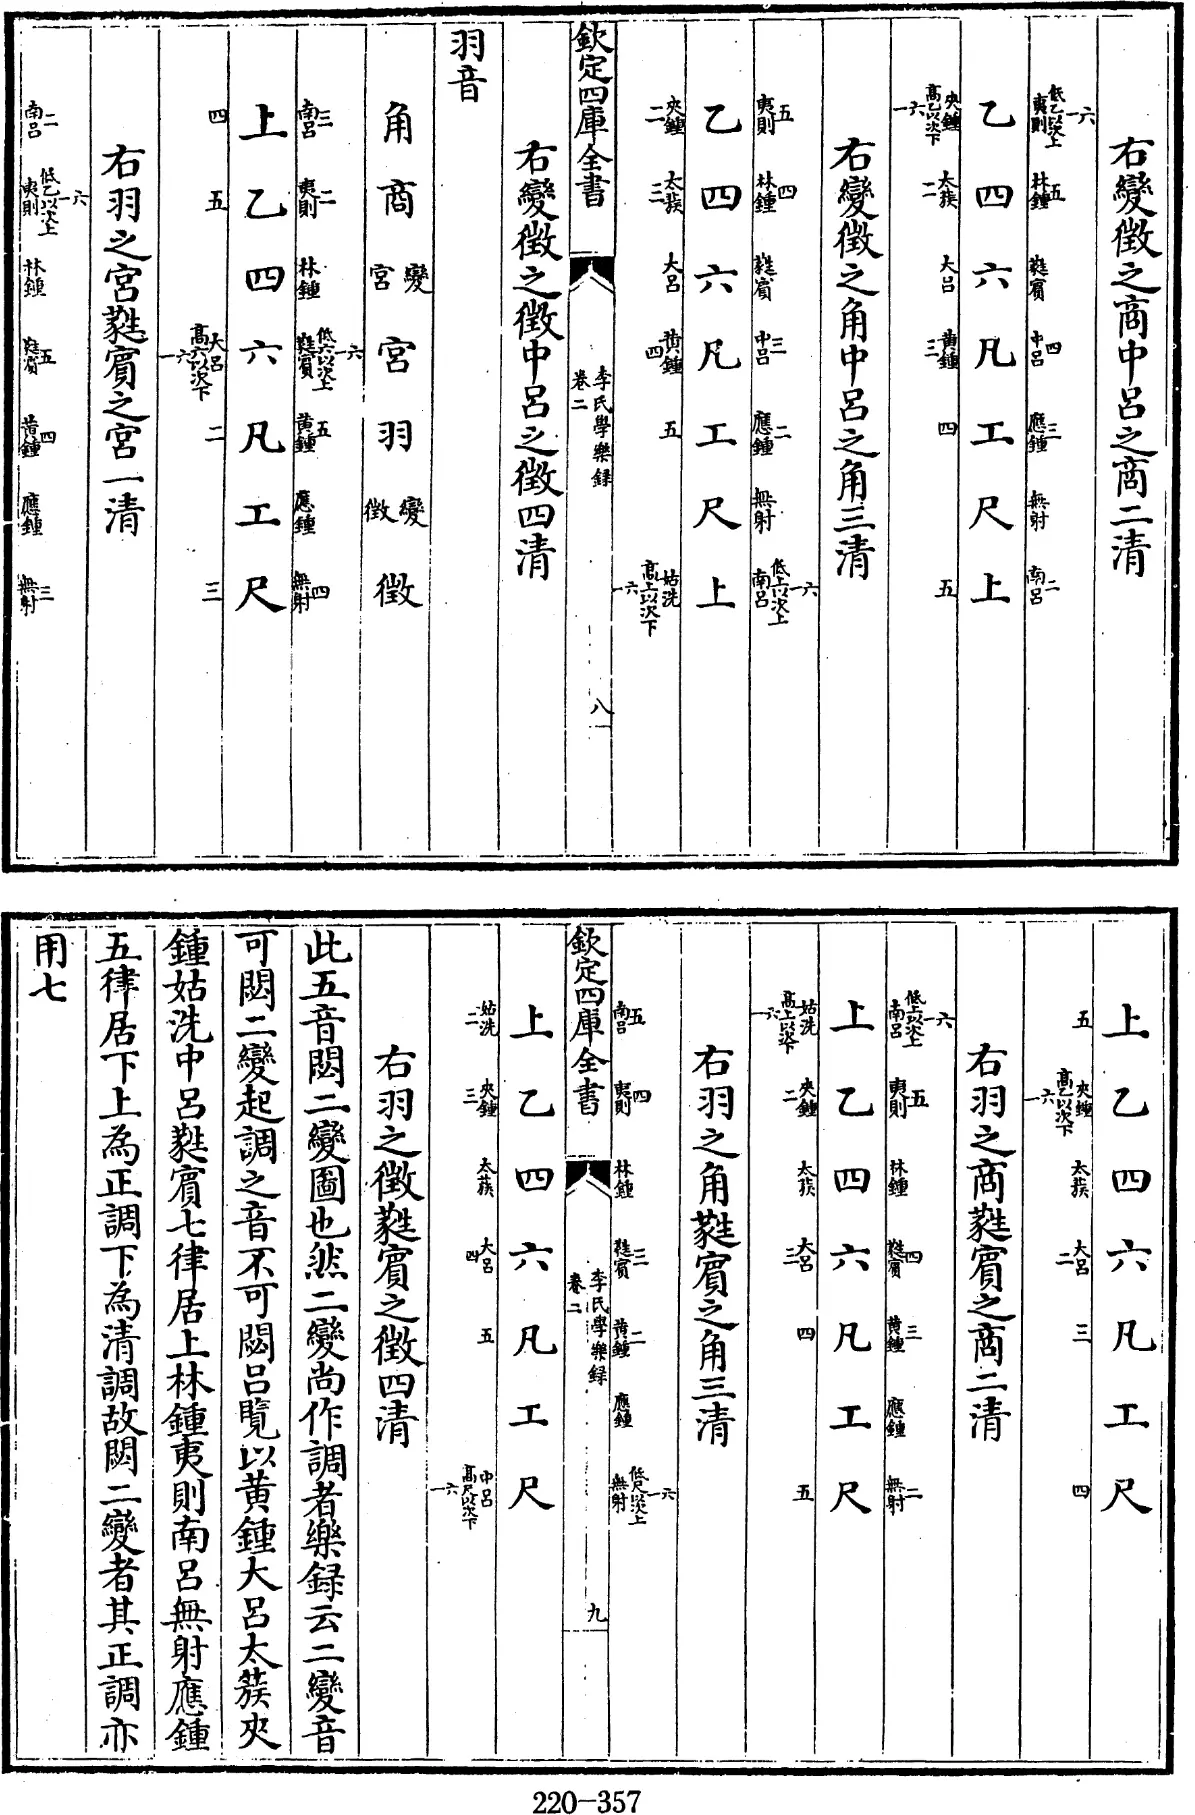 右變徵之商中呂之商二清
六一 五 四 三 二
低乙以次上夷則 林鍾 蕤賓 中呂 應鍾 無射 南呂
乙四六凡工尺上
夾鍾高乙以次下 太蔟 大呂 黄鍾
六一 二 三 四 五
右變徵之角中呂之角三清
五 四 三 二 六一
夷則 林鍾 蕤賓 中呂 應鍾 無射 低上以次上南呂
乙四六凡工尺上
夾鍾 太蔟 大呂 黄鍾 姑洗高上以次下
二 三 四 五 六一
右變徵之徵中呂之徵四清
欽定四庫全書
李氏學樂録
卷二
八
羽音
角商變宮宮羽變徵徵
三 二 六一 五 四
南呂 夷則 林鍾 低六以次上蕤賓 黄鍾 應鍾 無射
上乙四六凡工尺
四 五 大呂高六以次下 二 三
六一
右羽之宮蕤賓之宮一清
二 六一 五 四 三
南呂 低乙以次上夷則 林鍾 蕤賓 黄鍾 應鍾 無射
上乙四六凡工尺
五 夾鍾高乙以次下 太蔟 大呂 三 四
六一 二
右羽之商蕤賓之商二清
六一 五 四 三 二
低上以次上南呂 夷則 林鍾 蕤賓 黄鍾 應鍾 無射
上乙四六凡工尺
姑洗高上以次下 夾鍾 太蔟 大呂 四 五
六一 二 三
右羽之角蕤賓之角三清
五 四 三 二 六一
南呂 夷則 林鍾 蕤賓 黄鍾 應鍾 低尺以次上無射
欽定四庫全書
李氏學樂録
卷二
九
上乙四六凡工尺
姑洗 夾鍾 太蔟 大呂 五 中呂高尺以次下
二 三 四 六一
右羽之徵蕤賓之徵四清
此五音閟二變圖也然二變尚作調者樂録云二變音
可閟二變起調之音不可閟呂覽以黄鍾大呂太蔟夾
鍾姑洗中呂蕤賓七律居上林鍾夷則南呂無射應鍾
五律居下上為正調下為清調故閟二變者其正調亦
用七
220-357